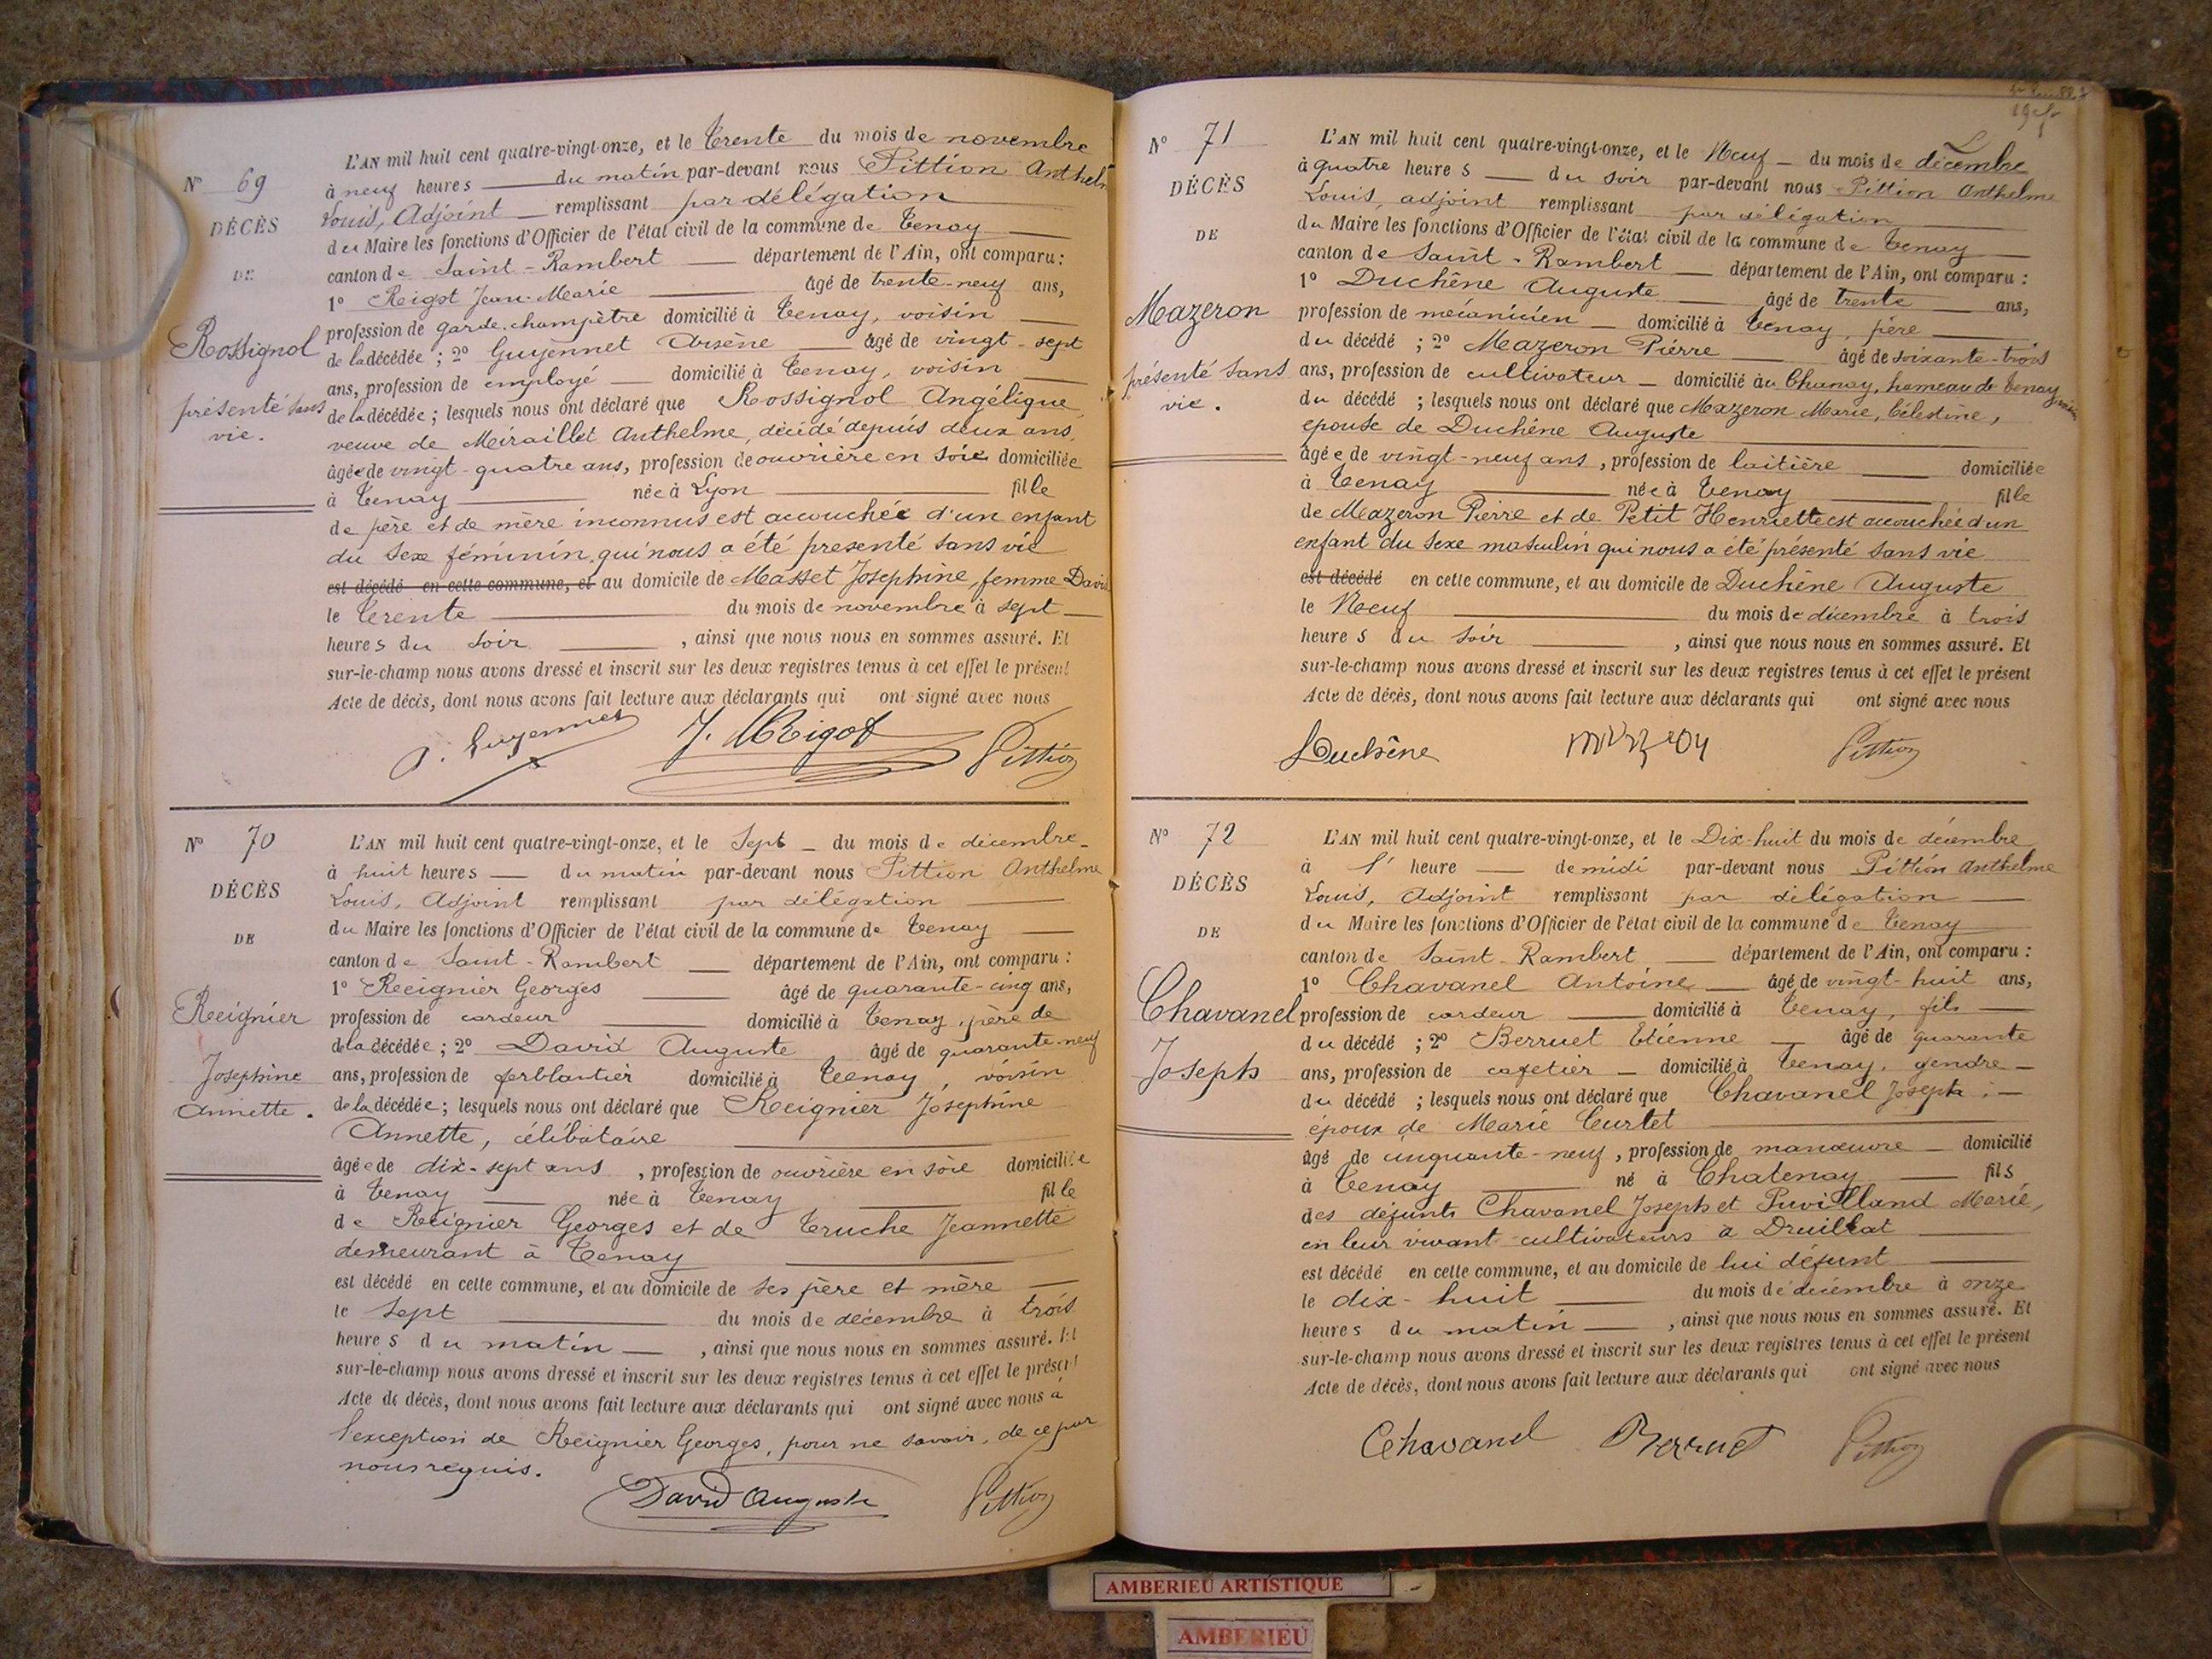 N° 69
DÉCÈS
DE
Rossignol
présenté sans
vie.
L'AN mil huit cent quatre-vingt-onze, et le Trente du mois de novembre
à neuf heures du matin par-devant nous Pittion Anthelm
Louis, Adjoint remplissant par délégation
du Maire les fonctions d'Officier de l'état civil de la commune de Tenay
canton de Saint-Rambert département de l'Ain, ont comparu :
1° Rigot Jean-Marie âgé de trente-neuf ans,
profession de garde-champêtre domicilié à Tenay, voisin
de la décédée ; 2° Guyennet Arsène âgé de vingt-sept
ans, profession de employé domicilié à Tenay, voisin
de la décédée ; lesquels nous ont déclaré que Rossignol Angélique
veuve de Miraillet Anthelme, décédé depuis deux ans,
âgée de vingt-quatre ans, profession de ouvrière en soie domiciliée
à Tenay née à Lyon fille
de père et de mère inconnus est accouchée d'un enfant
du sexe féminin qui nous a été presenté sans vie
est décédé en cette commune, et au domicile de Masset Josephine, femme David
le Trente du mois de novembre à sept
heures du soir , ainsi que nous nous en sommes assuré. Et
sur-le-champ nous avons dressé et inscrit sur les deux registres tenus à cet effet le présent
Acte de décès, dont nous avons fait lecture aux déclarants qui ont signé avec nous
A. Guyennet J. M Rigot Pittion
N° 70
DÉCÈS
DE
Reignier
Josephine
Annette.
L'AN mil huit cent quatre-vingt-onze, et le Sept du mois de décembre
à huit heures du matin par-devant nous Pittion Anthelme
Louis, Adjoint remplissant par délégation
du Maire les fonctions d'Officier de l'état civil de la commune de Tenay
canton de Saint-Rambert département de l'Ain, ont comparu :
1° Reignier Georges âgé de quarante-cinq ans,
profession de cardeur domicilié à Tenay, père de
de la décédée ; 2° David Auguste âgé de quarante-neuf
ans, profession de ferblantier domicilié à Tenay, voisin
de la décédée ; lesquels nous ont déclaré que Reignier Josephine
Annette, célibataire
âgée de dix-sept ans , profession de ouvrière en soie domiciliée
à Tenay née à Tenay fille
de Reignier Georges et de Truche Jeannette
demeurant à Tenay
est décédé en cette commune, et au domicile de ses père et mère
le sept du mois de décembre à trois
heures du matin , ainsi que nous nous en sommes assuré. Et
sur-le-champ nous avons dressé et inscrit sur les deux registres tenus à cet effet le présent
Acte de décès, dont nous avons fait lecture aux déclarants qui ont signé avec nous à
l'exception de Reignier Georges, pour ne savoir, de ce par
nous requis.
David Auguste Pittion
N° 71
DÉCÈS
DE
Mazeron
présenté sans
vie.
L'AN mil huit cent quatre-vingt-onze, et le Neuf du mois de décembre
à quatre heures du soir par-devant nous Pittion Anthelme
Louis, adjoint remplissant par délégation
du Maire les fonctions d'Officier de l'état civil de la commune de Tenay
canton de Saint-Rambert département de l'Ain, ont comparu :
1° Duchêne Auguste âgé de trente ans,
profession de mécanicien domicilié à Tenay, père
du décédé ; 2° Mazeron Pierre âgé de soixante-trois
ans, profession de cultivateur domicilié au Chanay, hameau de Tenay
du décédé ; lesquels nous ont déclaré que Mazeron Marie, Célestine,
epouse de Duchêne Auguste
âgée de vingt-neuf ans , profession de laitière domiciliée
à Tenay née à Tenay fille
de Mazeron Pierre et de Petit Henriette est accouchée d'un
enfant du sexe masculin qui nous a été présenté sans vie
est décédé en cette commune, et au domicile de Duchêne Auguste
le Neuf du mois de décembre à trois
heures du soir , ainsi que nous nous en sommes assuré. Et
sur-le-champ nous avons dressé et inscrit sur les deux registres tenus à cet effet le présent
Acte de décès, dont nous avons fait lecture aux déclarants qui ont signé avec nous
Duchêne Pittion
N° 72
DÉCÈS
DE
Chavanel
Joseph
L'AN mil huit cent quatre-vingt-onze, et le Dix-huit du mois de décembre
à 1 heure de midi par-devant nous Pittion Anthelme
Louis, Adjoint remplissant par délégation
du Maire les fonctions d'Officier de l'état civil de la commune de Tenay
canton de Saint-Rambert département de l'Ain, ont comparu :
1° Chavanel Antoine âgé de vingt-huit ans,
profession de cardeur domicilié à Tenay, fils
du décédé ; 2° Berruet Etienne âgé de quarante
ans, profession de cafetier domicilié à Tenay, gendre
du décédé ; lesquels nous ont déclaré que Chavanel Joseph
époux de Marie Curtet
âgé de cinquante-neuf , profession de manœuvre domicilié
à Tenay né à Chatenay fils
des défunts Chavanel Joseph et Puvilland Marie,
en leur vivant cultivateurs à Druillat
est décédé en cette commune, et au domicile de lui défunt
le dix-huit du mois de décembre à onze
heures du matin , ainsi que nous nous en sommes assuré. Et
sur-le-champ nous avons dressé et inscrit sur les deux registres tenus à cet effet le présent
Acte de décès, dont nous avons fait lecture aux déclarants qui ont signé avec nous
Chavanel Berruet Pittion
AMBERIEU ARTISTIQUE
AMBERIEU